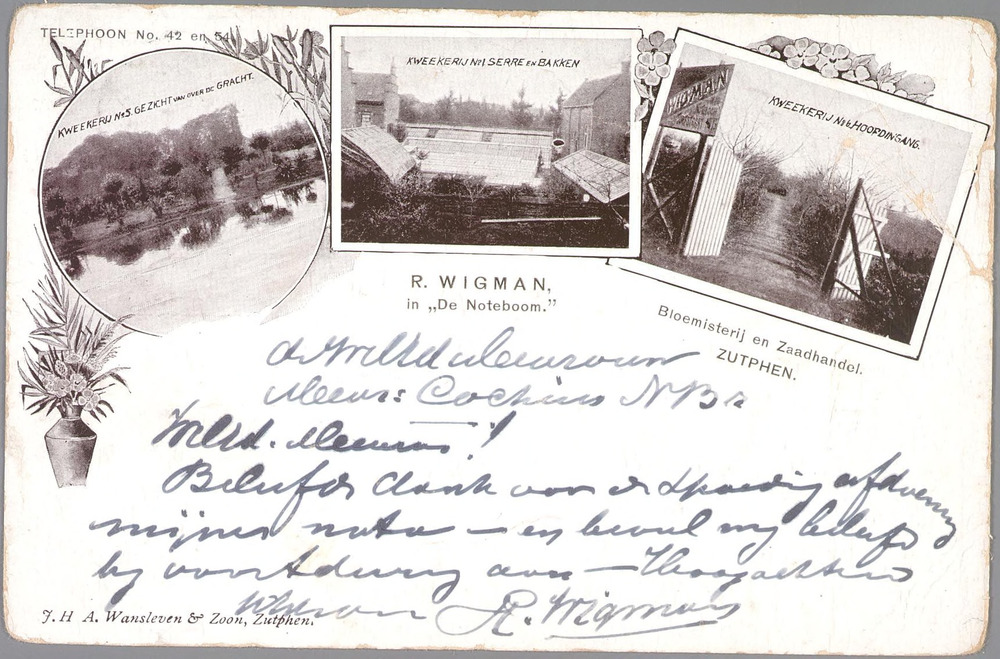 TELEPHOON No. 42 en 54
KWEEKERIJ No 5. GEZICHT VAN OVER DE GRACHT.
KWEEKERIJ No 1 SERRE EN BAKKEN
WIGMAN
KWEEKERIJ No 6, HOOFDINGANG.
R. WIGMAN,
in „De Noteboom.”
Bloemisterij en Zaadhandel.
ZUTPHEN.
Mevrouw
Mevr: Cochius
WelEd. Mevrouw!
Beleefd dank voor de spoedig afdoening
mijner nota — en beveel mij beleefd
bij voortduring aan — Hoogachtend
R. Wigman
J. H A. Wansleven & Zoon, Zutphen.